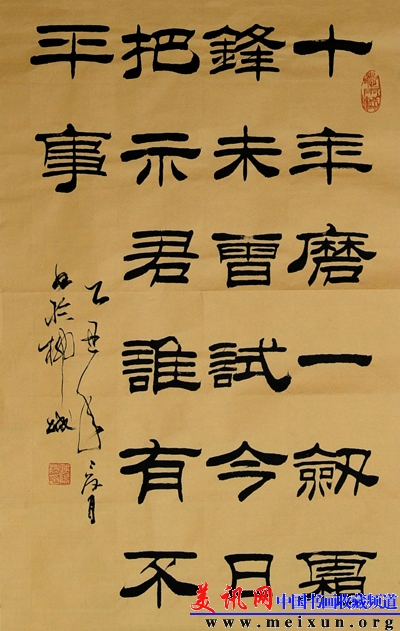 十年磨一劔霜
鋒未曾試今日
把示君誰有不
平事
乙丑年二月
美讯网 中国书画收藏频道
www.meixun.org